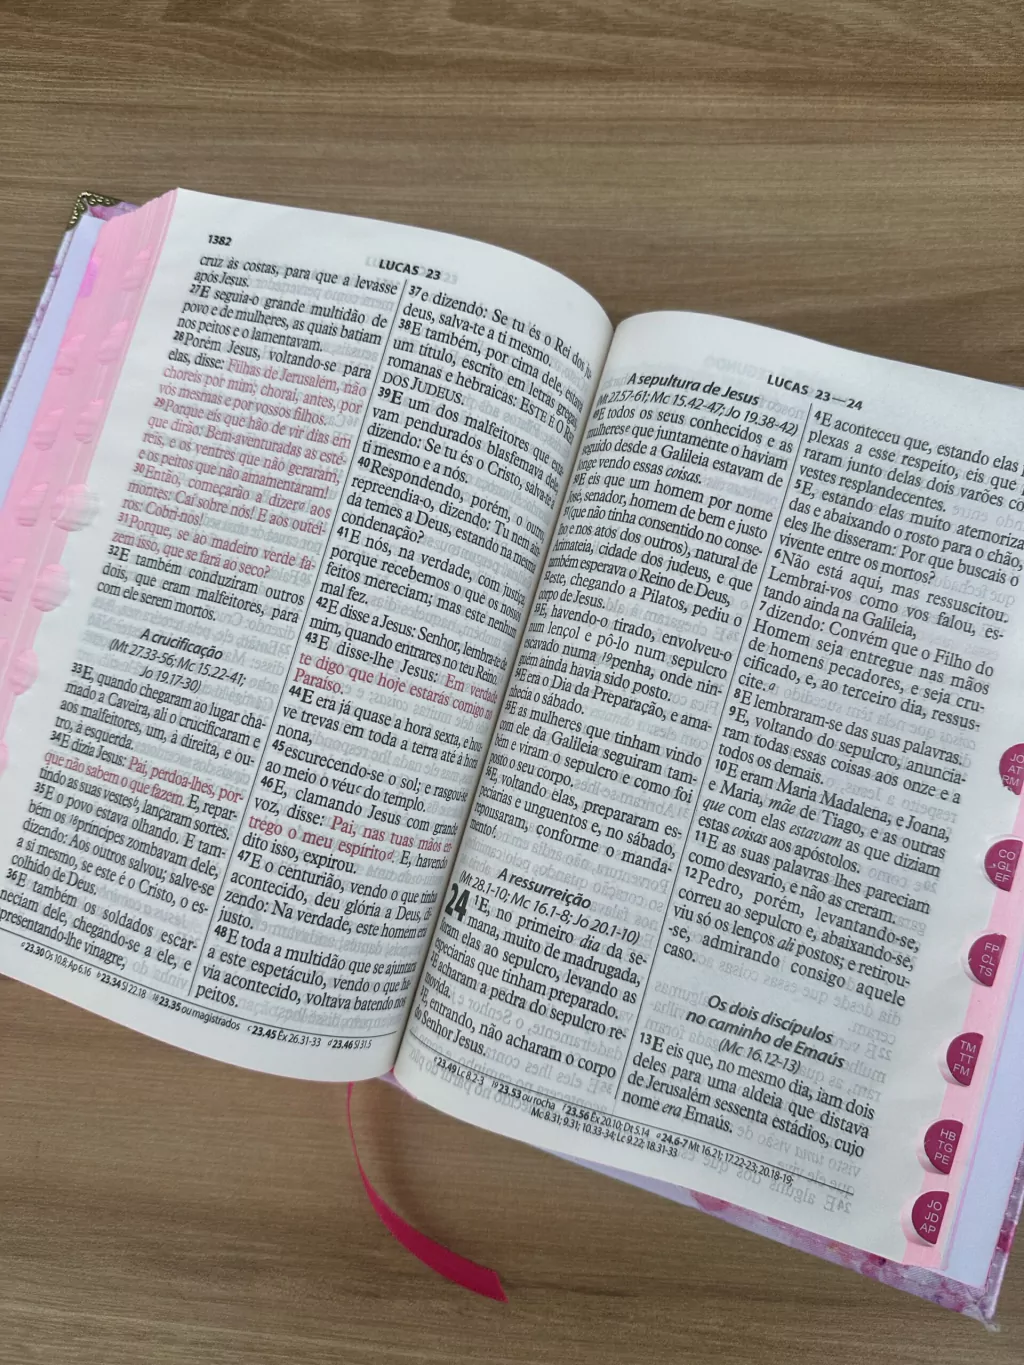 1382
LUCAS 23
cruz às costas, para que a levasse
após Jesus.
27E seguia-o grande multidão de
povo e de mulheres, as quais batiam
nos peitos e o lamentavam.
28Porém Jesus, voltando-se para
elas, disse: Filhas de Jerusalém, não
choreis por mim; chorai, antes, por
vós mesmas e por vossos filhos.
29Porque eis que hão de vir dias em
que dirão: Bem-aventuradas as esté-
reis, e os ventres que não geraram,
e os peitos que não amamentaram!
30Então, começarão a dizer a aos
montes: Caí sobre nós! E aos outei-
ros: Cobri-nos!
31Porque, se ao madeiro verde fa-
zem isso, que se fará ao seco?
32E também conduziram outros
dois, que eram malfeitores, para
com ele serem mortos.
A crucificação
(Mt 27.33-56; Mc 15.22-41;
Jo 19.17-30)
33E, quando chegaram ao lugar cha-
mado a Caveira, ali o crucificaram e
aos malfeitores, um, à direita, e ou-
tro, à esquerda.
34E dizia Jesus: Pai, perdoa-lhes, por-
que não sabem o que fazem. E, repar-
tindo as suas vestes b, lançaram sortes.
35E o povo estava olhando. E tam-
bém os 18príncipes zombavam dele,
dizendo: Aos outros salvou; salve-se
a si mesmo, se este é o Cristo, o es-
colhido de Deus.
36E também os soldados escar-
neciam dele, chegando-se a ele, e
apresentando-lhe vinagre,
37e dizendo: Se tu és o Rei dos Ju
deus, salva-te a ti mesmo.
38E também, por cima dele, estava
um título, escrito em letras gregas,
romanas e hebraicas: ESTE É O REI
DOS JUDEUS.
39E um dos malfeitores que esta
vam pendurados blasfemava dele,
dizendo: Se tu és o Cristo, salva-te a
ti mesmo e a nós.
40Respondendo, porém, o outro,
repreendia-o, dizendo: Tu nem ain
da temes a Deus, estando na mesma
condenação?
41E nós, na verdade, com justiça,
porque recebemos o que os nossos
feitos mereciam; mas este nenhum
mal fez.
42E disse a Jesus: Senhor, lembra-te de
mim, quando entrares no teu Reino.
43E disse-lhe Jesus: Em verdade
te digo que hoje estarás comigo no
Paraíso.
44E era já quase a hora sexta, e hou
ve trevas em toda a terra até à hora
nona,
45escurecendo-se o sol; e rasgou-se
ao meio o véu c do templo.
46E, clamando Jesus com grande
voz, disse: Pai, nas tuas mãos en
trego o meu espírito d. E, havendo
dito isso, expirou.
47E o centurião, vendo o que tinha
acontecido, deu glória a Deus, di
zendo: Na verdade, este homem era
justo.
48E toda a multidão que se ajuntara
a este espetáculo, vendo o que ha
via acontecido, voltava batendo nos
peitos.
a 23.30 Os 10.8; Ap 6.16 b 23.34 Sl 22.18 18 23.35 ou magistrados c 23.45 Êx 26.31-33 d 23.46 Sl 31.5
LUCAS 23—24
A sepultura de Jesus
(Mt 27.57-61; Mc 15.42-47; Jo 19.38-42)
49E todos os seus conhecidos e as
mulheres e que juntamente o haviam
seguido desde a Galileia estavam de
longe vendo essas coisas.
50E eis que um homem por nome
José, senador, homem de bem e justo
51(que não tinha consentido no conse-
lho e nos atos dos outros), natural de
Arimateia, cidade dos judeus, e que
também esperava o Reino de Deus,
52este, chegando a Pilatos, pediu o
corpo de Jesus.
53E, havendo-o tirado, envolveu-o
num lençol e pô-lo num sepulcro
escavado numa 19penha, onde nin-
guém ainda havia sido posto.
54E era o Dia da Preparação, e ama-
nhecia o sábado.
55E as mulheres que tinham vindo
com ele da Galileia seguiram tam-
bém e viram o sepulcro e como foi
posto o seu corpo.
56E, voltando elas, prepararam es-
peciarias e unguentos e, no sábado,
repousaram, conforme o manda-
mento f.
A ressurreição
(Mt 28.1-10; Mc 16.1-8; Jo 20.1-10)
24 1E, no primeiro dia da se-
mana, muito de madrugada,
foram elas ao sepulcro, levando as
especiarias que tinham preparado.
2E acharam a pedra do sepulcro re-
movida.
3E, entrando, não acharam o corpo
do Senhor Jesus.
4E aconteceu que, estando elas
plexas a esse respeito, eis que
raram junto delas dois varões co
vestes resplandecentes.
5E, estando elas muito atemoriza
das e abaixando o rosto para o chão,
eles lhe disseram: Por que buscais o
vivente entre os mortos?
6Não está aqui, mas ressuscitou.
Lembrai-vos como vos falou, es-
tando ainda na Galileia,
7dizendo: Convém que o Filho do
Homem seja entregue nas mãos
de homens pecadores, e seja cru-
cificado, e, ao terceiro dia, ressus-
cite. g
8E lembraram-se das suas palavras.
9E, voltando do sepulcro, anuncia-
ram todas essas coisas aos onze e a
todos os demais.
10E eram Maria Madalena, e Joana,
e Maria, mãe de Tiago, e as outras
que com elas estavam as que diziam
estas coisas aos apóstolos.
11E as suas palavras lhes pareciam
como desvario, e não as creram.
12Pedro, porém, levantando-se,
correu ao sepulcro e, abaixando-se,
viu só os lenços ali postos; e retirou-
-se, admirando consigo aquele
caso.
Os dois discípulos
no caminho de Emaús
(Mc 16.12-13)
13E eis que, no mesmo dia, iam dois
deles para uma aldeia que distava
de Jerusalém sessenta estádios, cujo
nome era Emaús.
e 23.49 Lc 8.2-3 19 23.53 ou rocha f 23.56 Êx 20.10; Dt 5.14 g 24.6-7 Mt 16.21; 17.22-23; 20.18-19;
Mc 8.31; 9.31; 10.33-34; Lc 9.22; 18.31-33
JO
AT
RM
CO
GL
EF
FP
CL
TS
TM
TT
FM
HB
TG
PE
JO
JD
AP